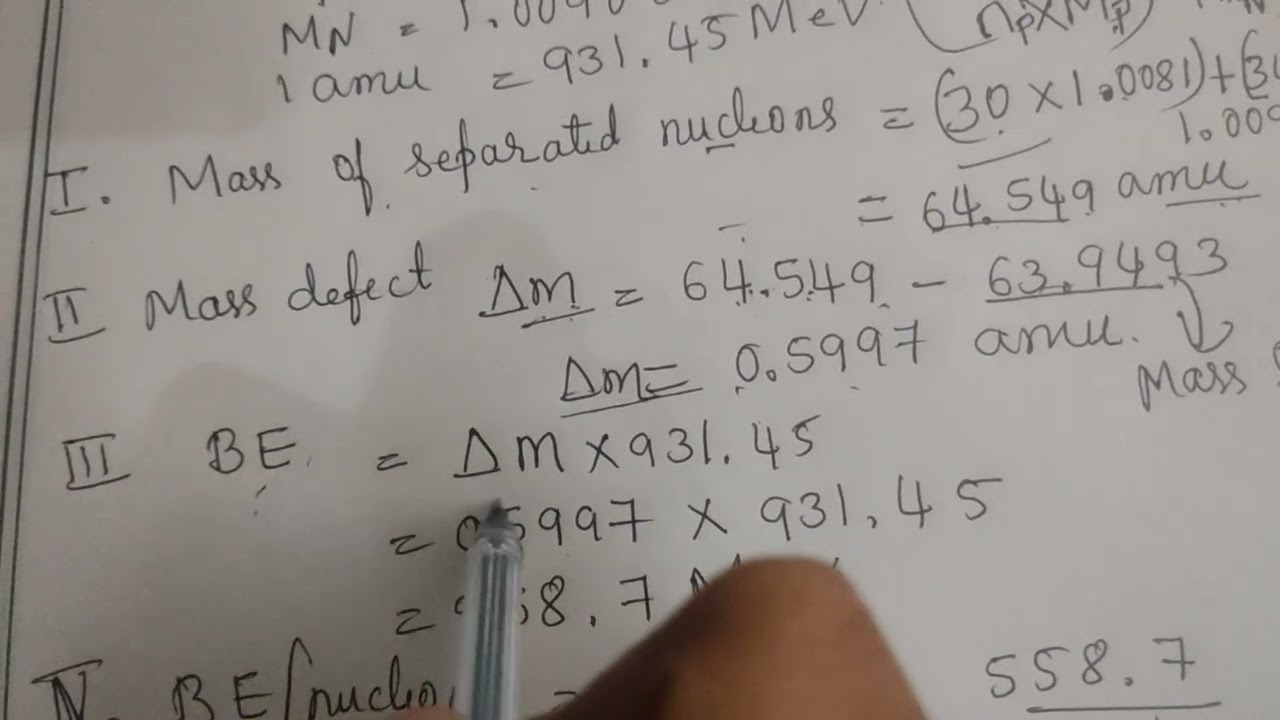 MN = 1.0090
(np×Mp)
1 amu = 931.45 MeV
I. Mass of separated nucleons = (30 × 1.0081) + (3
1.009
= 64.549 amu
II Mass defect Δm = 64.549 - 63.9493
Δm = 0.5997 amu.
Mass
III BE = Δm × 931.45
= 0.5997 × 931.45
= 8.7
IV. BE/nucleo =
558.7